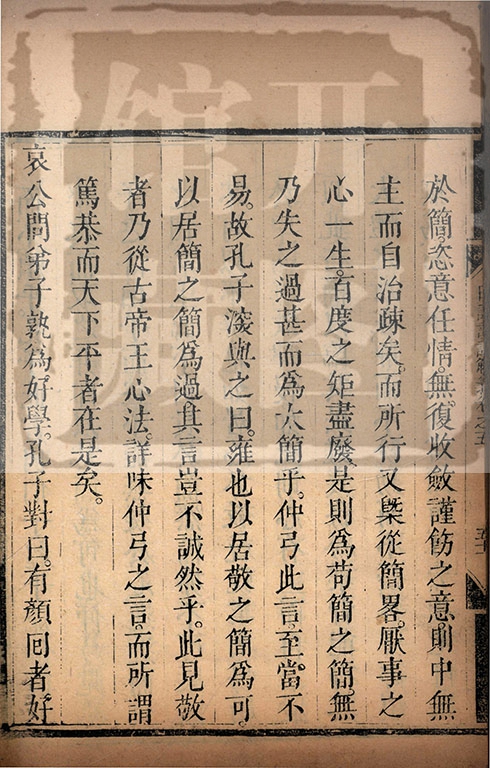 於簡。恣意任情。無復收斂謹飭之意。則中無
主而自治疎矣。而所行又槩從簡畧。厭事之
心一生。百度之矩盡廢。是則為苟簡之簡。無
乃失之過甚而為太簡乎。仲弓此言。至當不
易。故孔子深與之曰。雍也以居敬之簡為可。
以居簡之簡為過。其言豈不誠然乎。此見敬
者乃從古帝王心法。詳味仲弓之言。而所謂
篤恭而天下平者在是矣。
哀公問弟子孰為好學。孔子對曰。有顏回者好